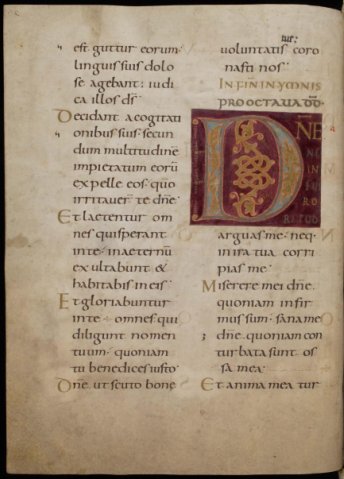 est guttur eorum·
linguis suis dolo
se agebant: iudi
ca illos ds̄
Decidant a cogitati
onibus suis· secun
dum multitudinē
impietatum eorū
expelle eos· quo
irritauer̄ te dn̄e·
Et laetentur om
nes qui sperant
in te· in aeternū
exultabunt &
habitabis in eis·
Et gloriabuntur
in te· omnes qui
diligunt nomen
tuum· quoniam
tu benedices iusto·
Dn̄e· ut scuto bone
tue·
voluntatis coro
nasti nos·
IN FIN̄ IN YMNIS
PRO OCTAVA DD·
DN̄E
NE
IN
FU
RO
RE TUO
arguas me· neq·
in ira tua corri
pias me·
Miserere mei dn̄e·
quoniam infir
mus sum· sana me
dn̄e· quoniam con
turbata sunt· os
sa mea·
Et anima mea tur